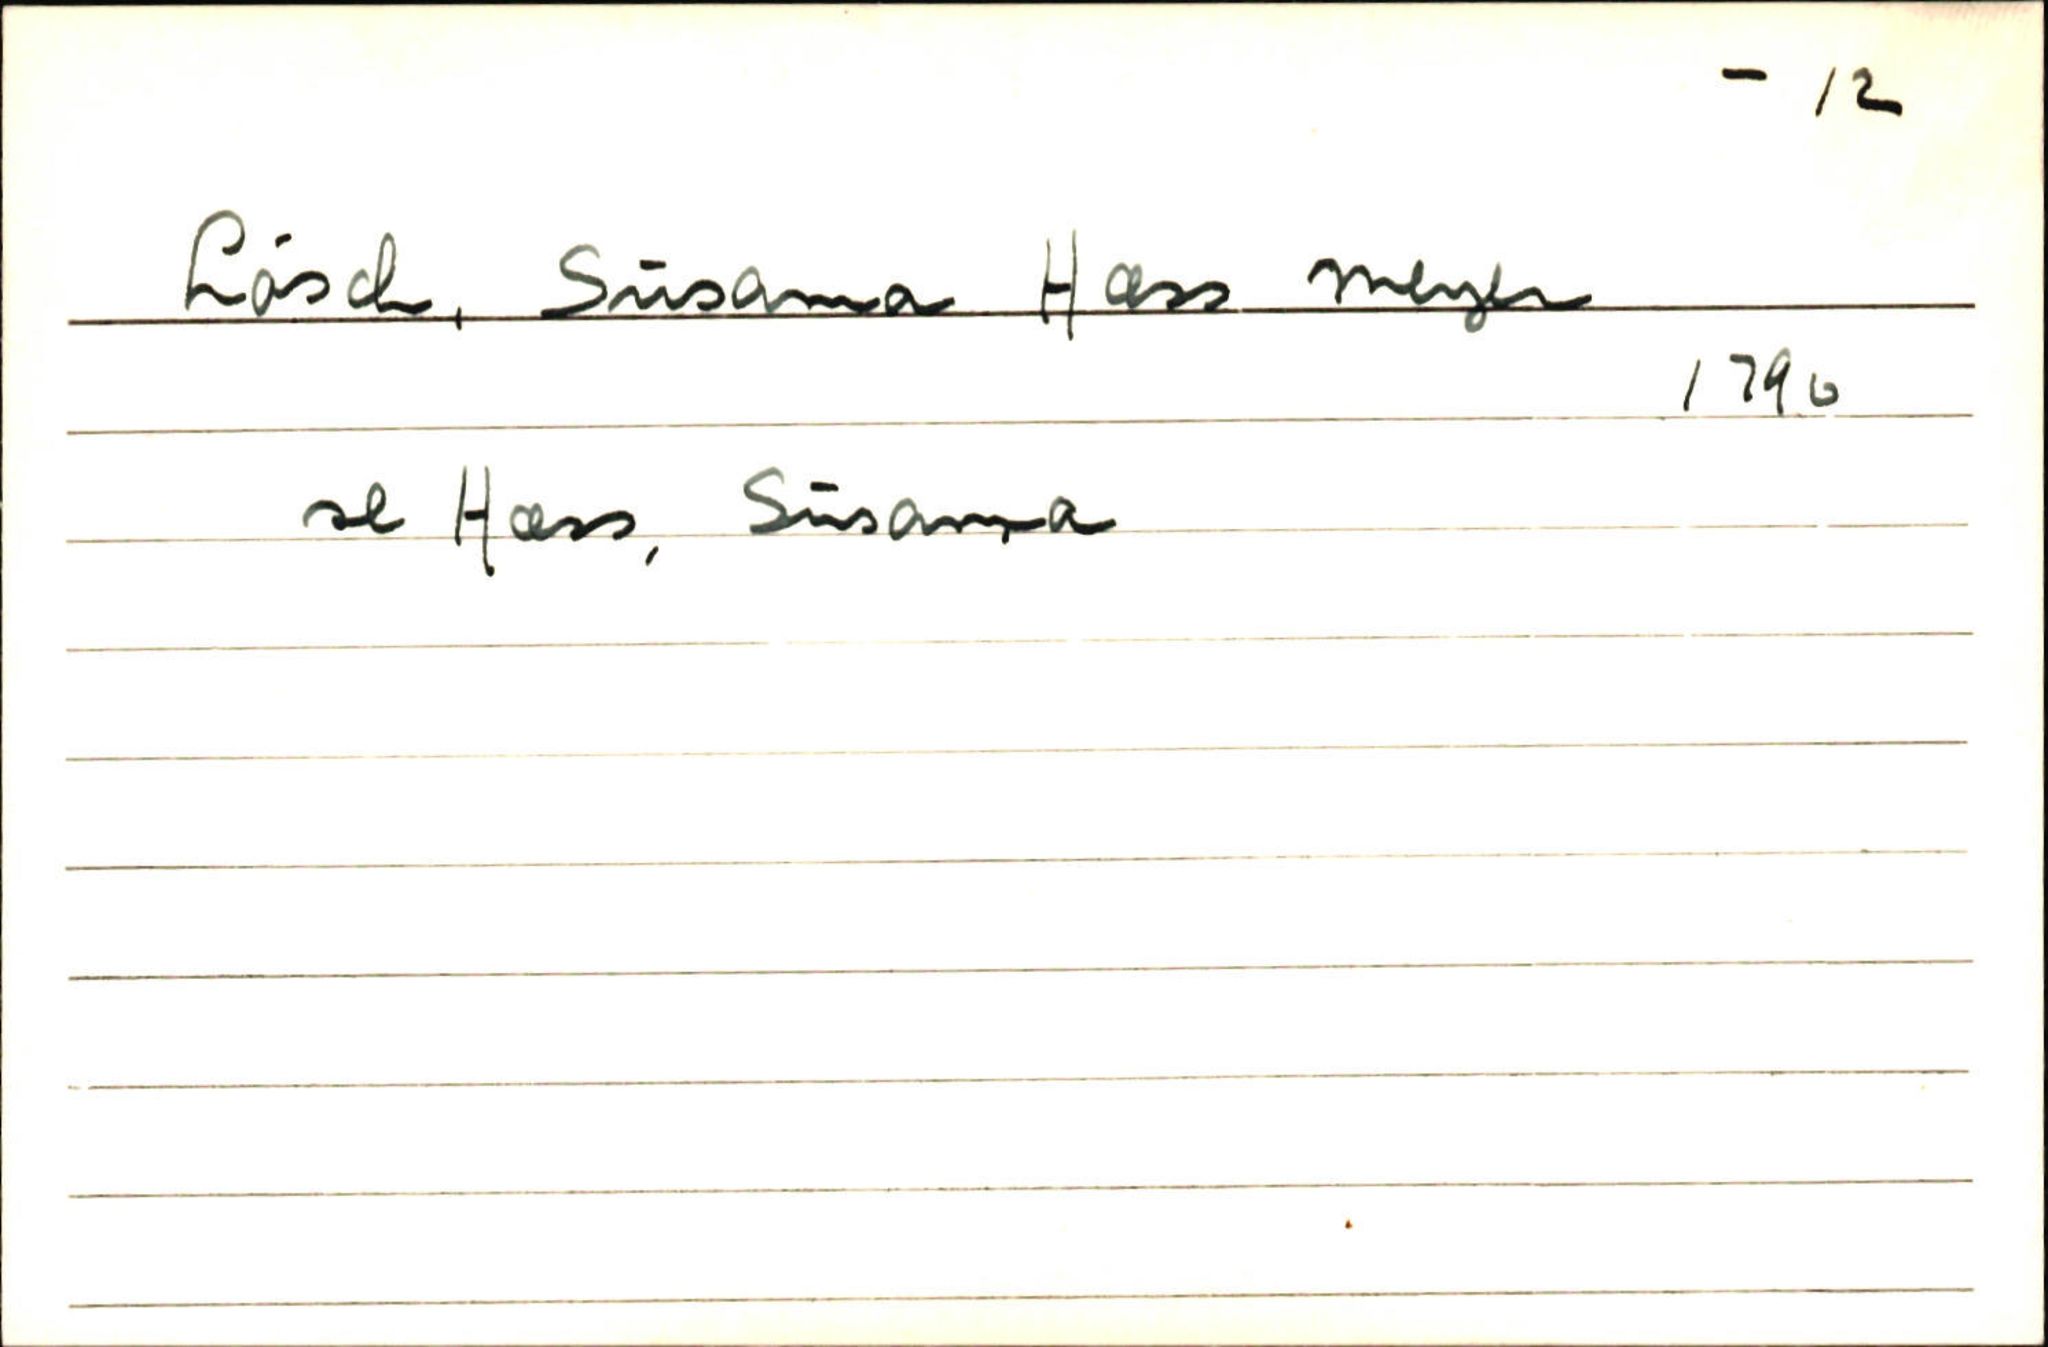 - 12
Lösch, Susanna Hass Meyer
1790
se Hass, Susanna